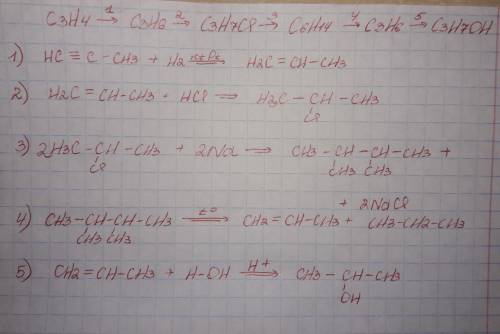 C3H4 1→ C3H6 2→ C3H7Cl 3→ C6H14 4→ C3H6 5→ C3H7OH
1) HC ≡ C - CH3 + H2 ⟹ H2C = CH - CH3
2) H2C = CH - CH3 + HCl ⟹ H3C - CH - CH3
Cl
3) 2H3C - CH - CH3 + 2Na ⟶ CH3 - CH - CH - CH3 +
Cl CH3 CH3
+ 2NaCl
4) CH3 - CH - CH - CH3 t° ⟹ CH2 = CH - CH3 + CH3 - CH2 - CH3
CH3 CH3
5) CH2 = CH - CH3 + H - OH H+ ⟶ CH3 - CH - CH3
OH